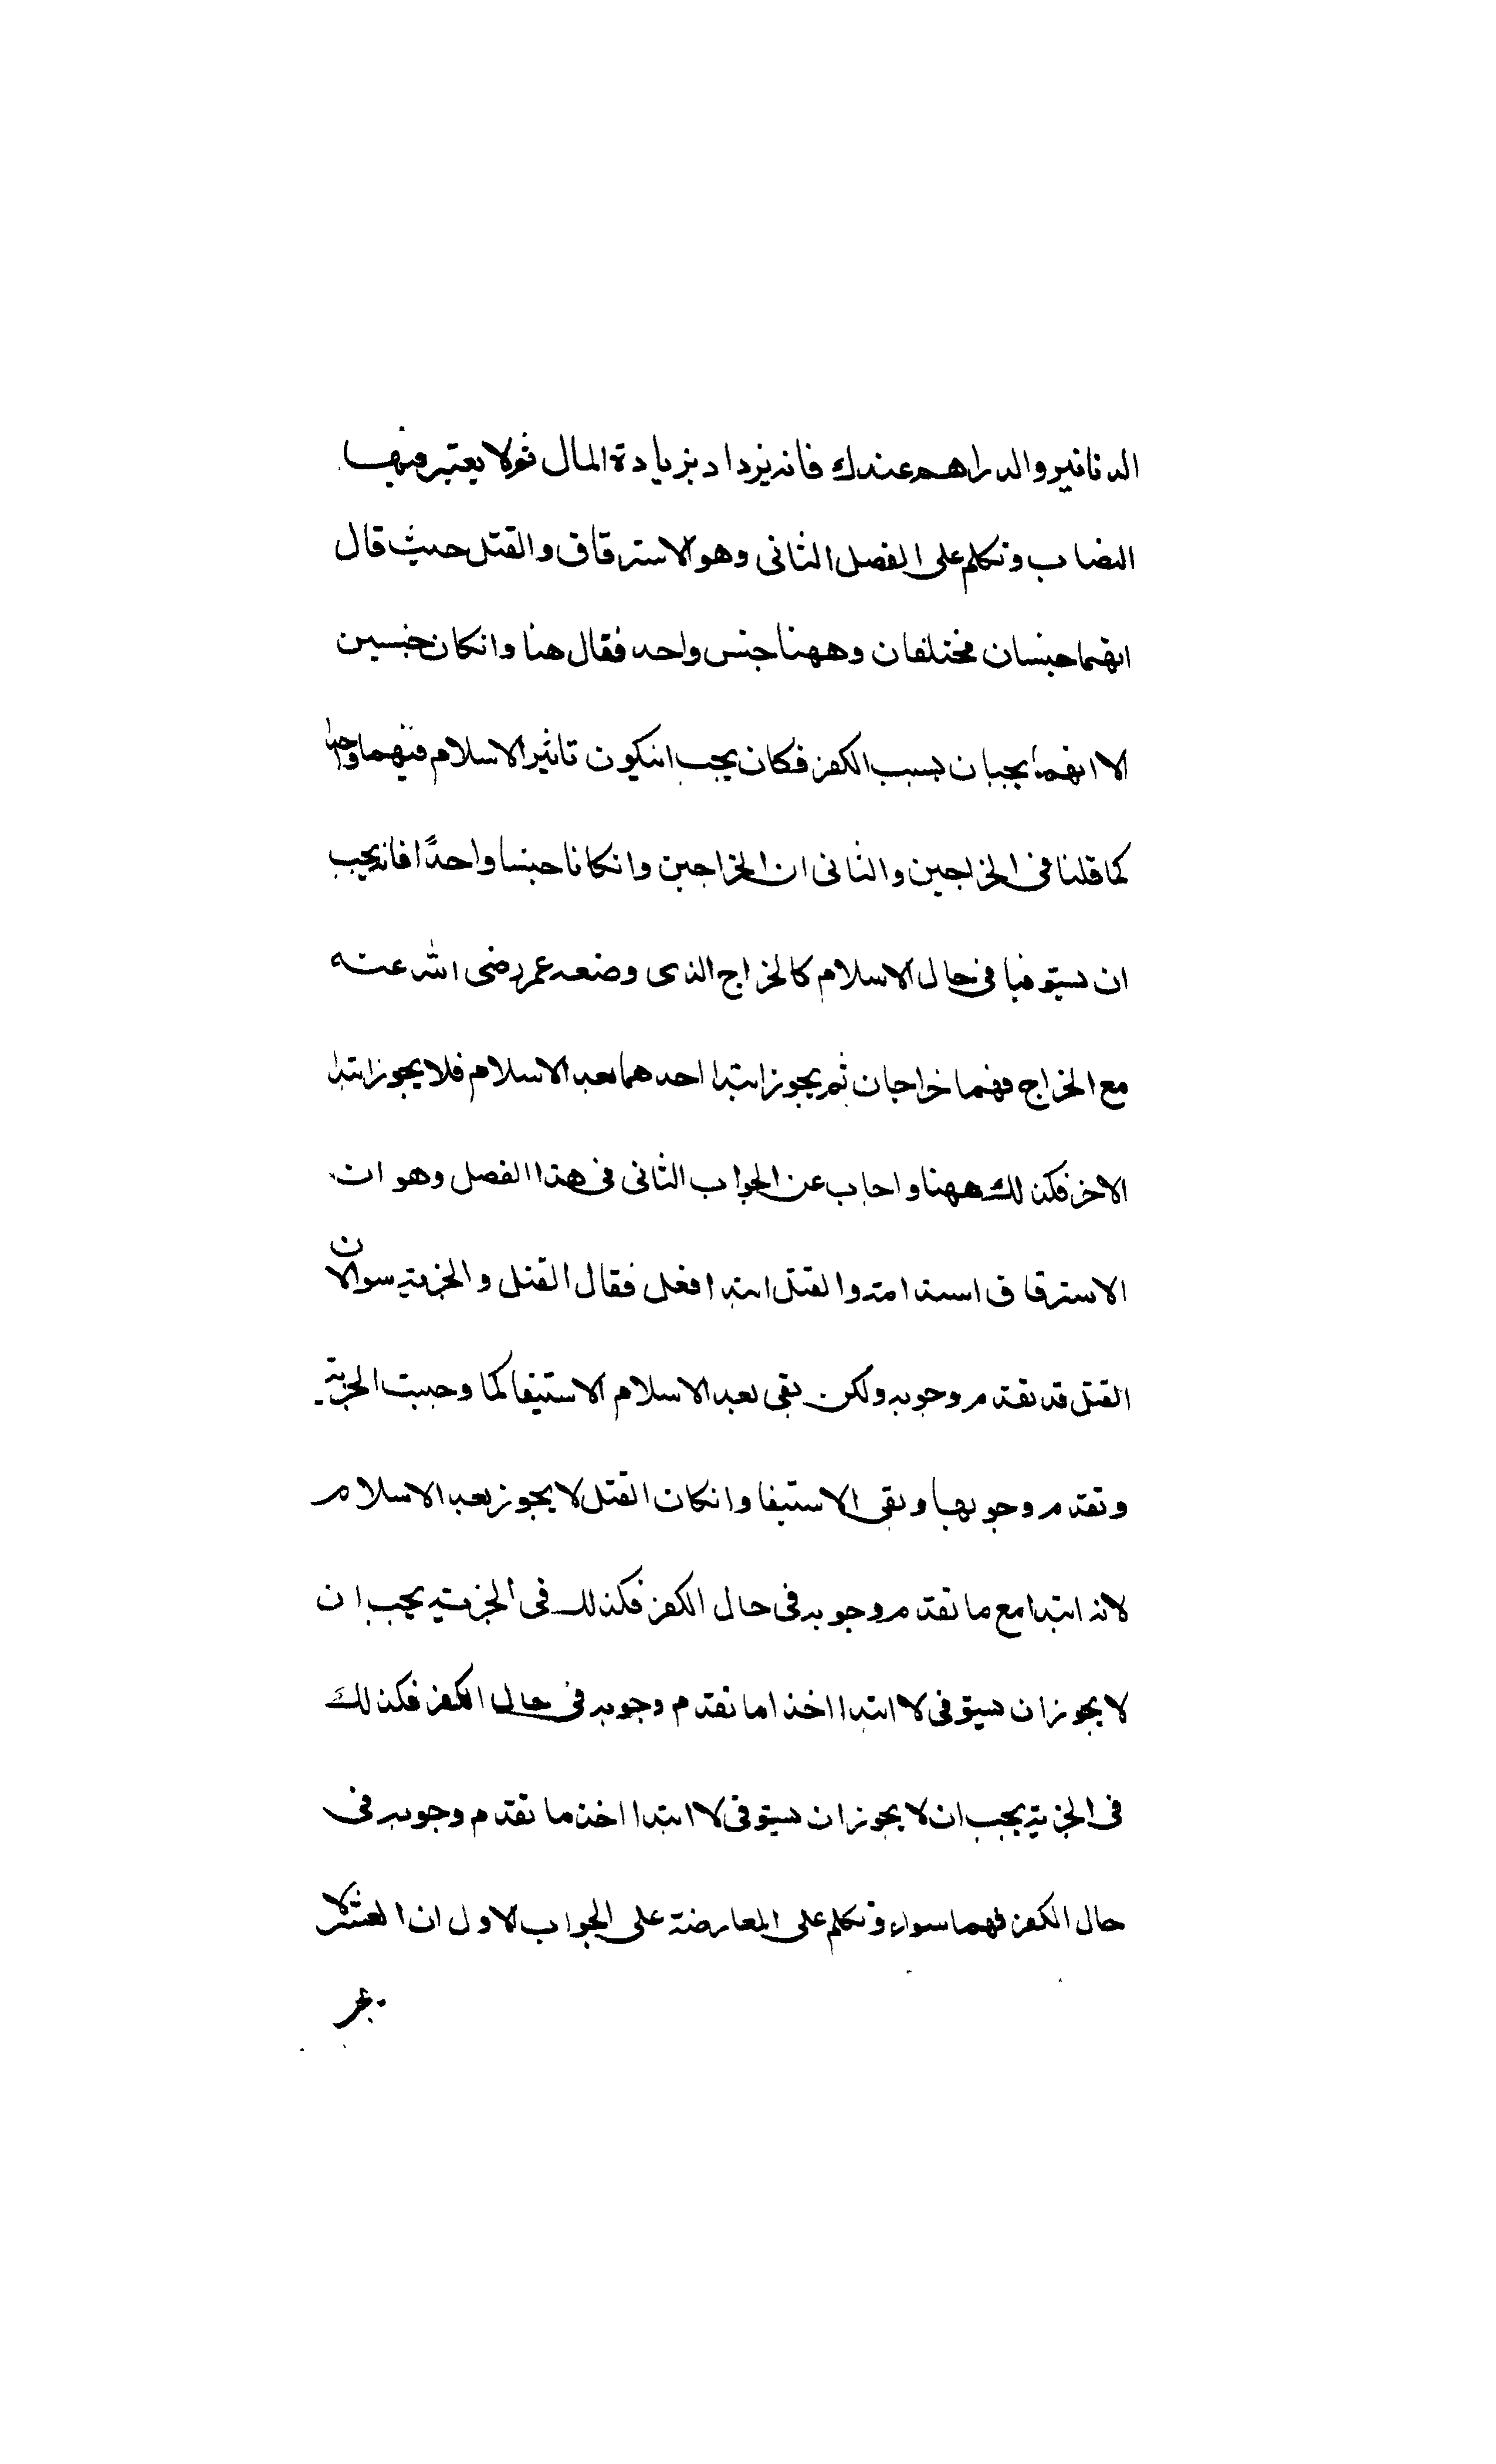 الدنانير والدراهم عندك فانه يزداد بزيادة المال ثم لا يعتبر فيها
النصاب وتكلم على الفصل الثاني وهو الاسترقاق والقتل حيث قال
انهما جنسان مختلفان وههنا جنس واحد فقال هنا وانكان جنسين
الا انهما يجبان بسبب الكفر فكان يجب انيكون تاثير الاسلام فيهما واحدا
كما قلنا في الخراجين والثاني ان الخراجين وانكانا جنسا واحدًا فانه يجب
ان يستوفيا في حال الاسلام كالخراج الذي وضعه عمر رضى الله عنه
مع الخراج فهما خراجان ثم يجوز ابتدا احدهما بعد الاسلام فلا يجوز ابتدا
الاخر فكذلك ههنا واجاب عن الجواب الثاني في هذا الفصل وهو ان
الاسترقاق استدامة والقتل ابتدا فعل فقال القتل والجزية سوا لان
القتل قد تقدم وجوبه ولكن بقى بعد الاسلام الاستيفا كما وجبت الجزية
وتقدم وجوبها وبقى الاستيفا وانكان القتل لا يجوز بعد الاسلام
لانه ابتدا مع ما تقدم وجوبه في حال الكفر فكذلك في الجزية يجب ان
لا يجوز ان يستوفى لا ابتدا اخذ اما تقدم وجوبه في حال الكفر فكذلك
في الجزية يجب ان لا يجوز ان يستوفى لا ابتدا اخذ ما تقدم وجوبه في
حال الكفر فهما سواء وتكلم على المعارضة على الجواب الاول ان العشر لا